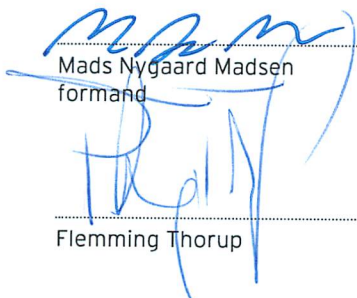 Mads Nygaard Madsen
formand
Flemming Thorup